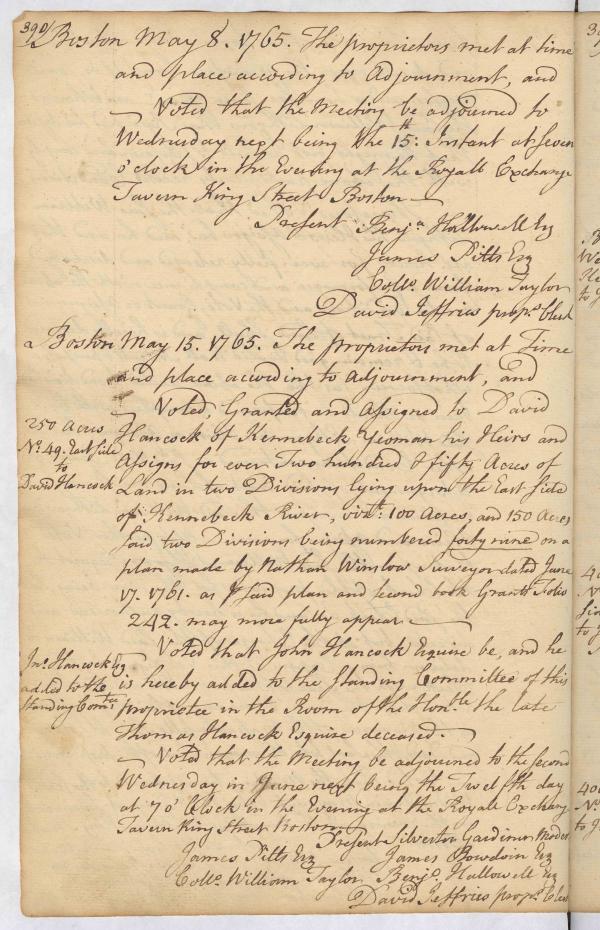 390/ Boston May 8. 1765. The proprietors met at time
and place according to Adjournment, and
Voted that the Meeting be adjourned to
Wednesday next being the 15th. Instant at Seven
o'clock in the Evening at the Royall Exchange
Tavern King Street Boston
Present Benja Hallowell Esq
James Pitts Esq
Collo. William Taylor
David Jeffries proprs. Clerk
Boston May 15. 1765. The proprietors met at Time
and place according to Adjournment, and
250 Acres
No. 49. East Side
to
David Hancock
Voted, Granted and Assigned to David
Hancock of Kennebeck Yeoman his Heirs and
Assigns for ever Two hundred & fifty Acres of
Land in two Divisions lying upon the East Side
of Kennebeck River, vizt. 100 Acres, and 150 Acres
said two Divisions being numbered forty nine on a
plan made by Nathan Winslow Surveyor dated June
17. 1761. as p said plan and second book Grants Folio
242. may more fully appear.
Jno. Hancock Esq
added to the
Standing Comtee
Voted that John Hancock Esquire be, and he
is hereby added to the Standing Committee of this
proprietee in the Room of the Honble. the late
Thomas Hancock Esquire deceased.
Voted that the Meeting be adjourned to the second
Wednesday in June next being the Twelfth day
at 7 o'Clock in the Evening at the Royall Exchange
Tavern King Street Boston
Present Silvester Gardiner Moder
James Pitts Esq James Bowdoin Esq
Collo. William Taylor Benja. Hallowell Esq
David Jeffries proprs. Clerk